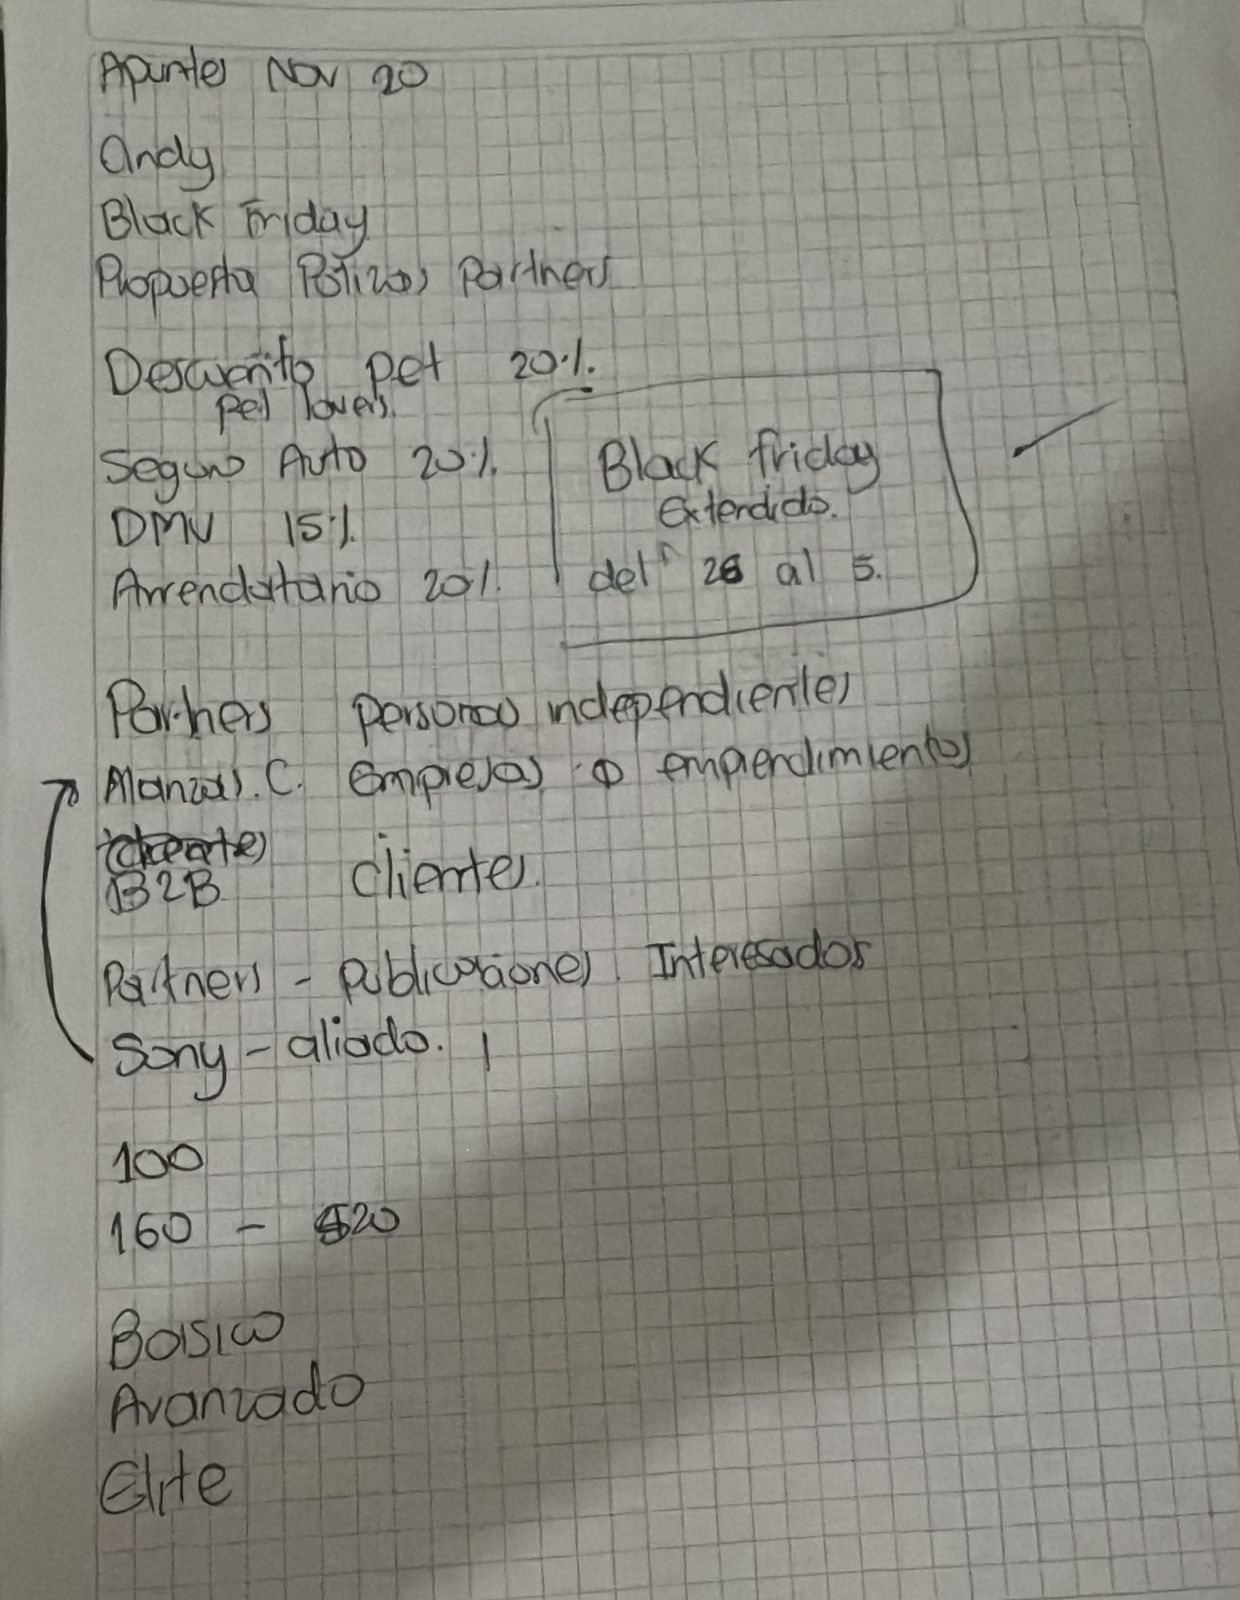 Apuntes Nov 20
Andy
Black Friday
Propuesta Pólizas Partners
Descuento pet 20%.
pet lovers.
Seguro Auto 20%.
DMV 15%.
Arrendatario 20%.
Black friday
Extendido.
del 26 al 5.
Partners personas independientes
Alianzas. C. Empresas o emprendimientos
B2B clientes.
Partners - publicaciones Interesados
Sony - aliado.
100
160 - 520
Basico
Avanzado
Elite